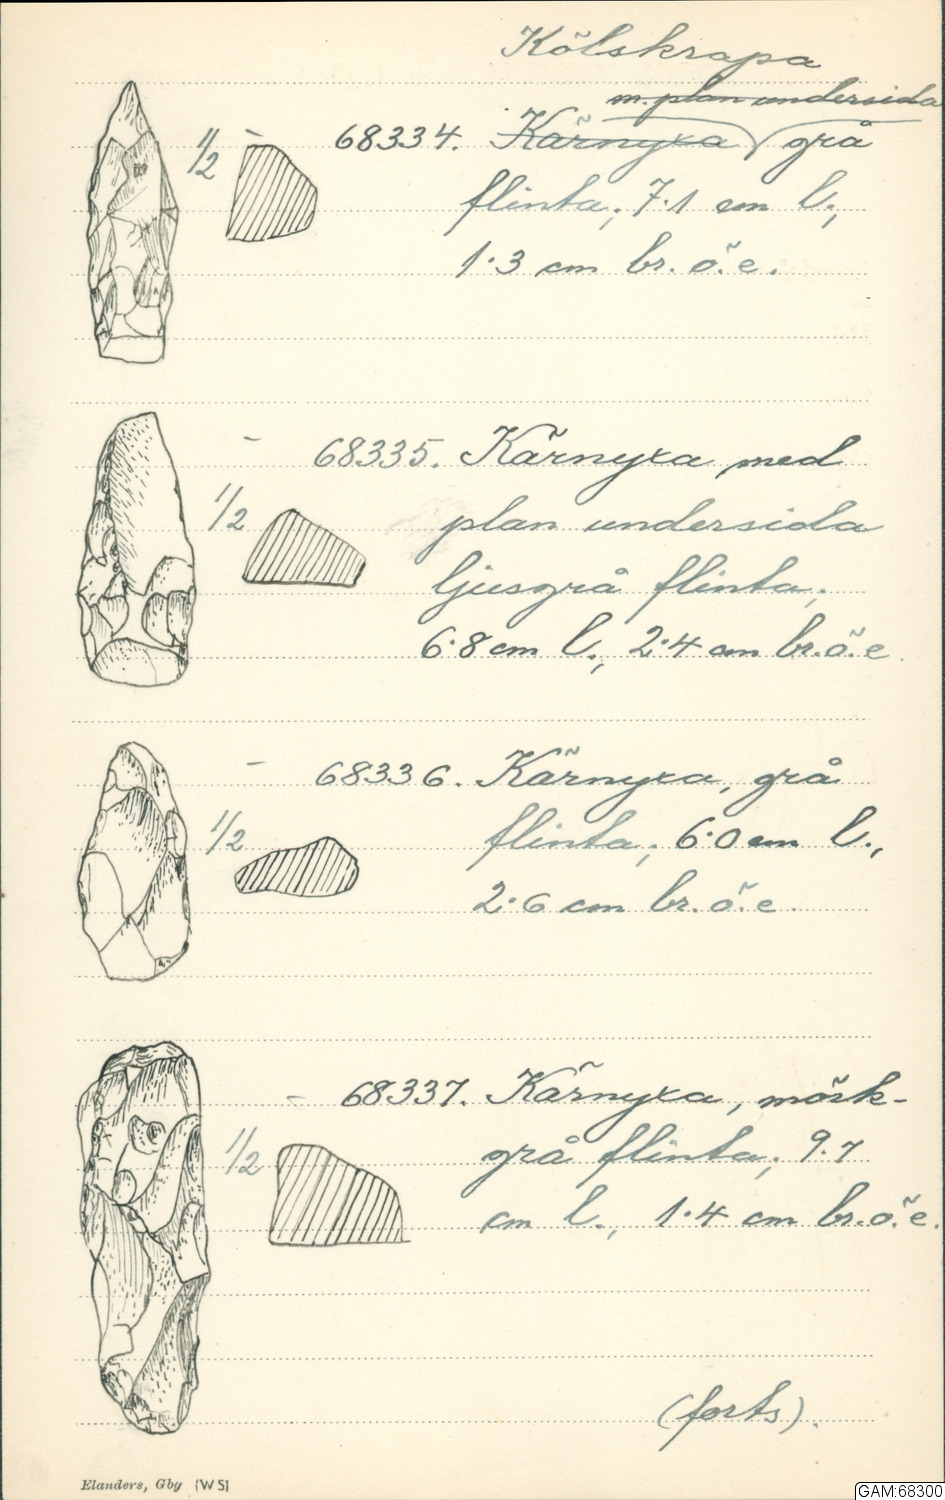 Kölskrapa
m. plan undersida
1/2 - 68334. Kärnyxa grå
flinta; 7.1 cm l.,
1.3 cm br. ö. e.
- 68335. Kärnyxa med
1/2 plan undersida
ljusgrå flinta;
6.8 cm l., 2.4 cm br. ö. e.
- 68336. Kärnyxa, grå
1/2 flinta; 6.0 cm l.,
2.6 cm br. ö. e.
- 68337. Kärnyxa, mörk-
1/2 grå flinta; 9.7
cm l., 1.4 cm br. ö. e.
(forts).
Elanders, Gby (WS)
GAM:68300